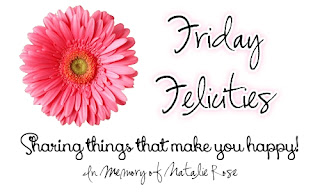 Friday
Felicities
Sharing things that make you happy!
In Memory of Natalie Rose